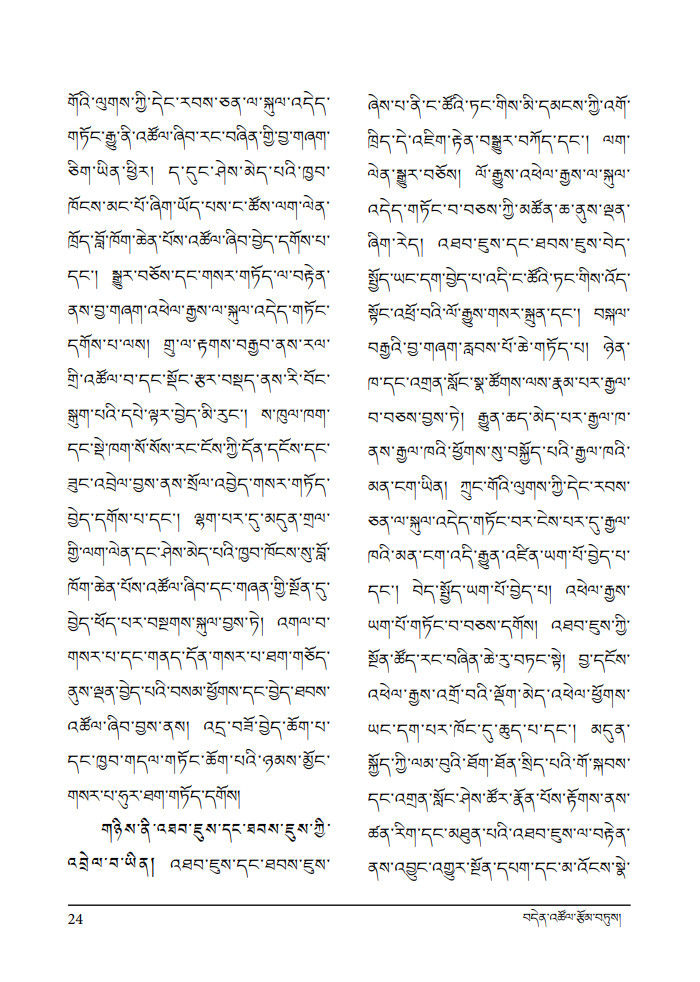 གོའི་ལུགས་ཀྱི་དེང་རབས་ཅན་ལ་སྐུལ་འདེད་
གཏོང་རྒྱུ་ནི་འཚོལ་ཞིབ་རང་བཞིན་གྱི་བྱ་གཞག་
ཅིག་ཡིན་ཕྱིར། ད་དུང་ཤེས་མེད་པའི་ཁྱབ་
ཁོངས་མང་པོ་ཞིག་ཡོད་པས་ང་ཚོས་ལག་ལེན་
ཁྲོད་བློ་ཁོག་ཆེན་པོས་འཚོལ་ཞིབ་བྱེད་དགོས་པ་
དང་། སྒྱུར་བཅོས་དང་གསར་གཏོད་ལ་བརྟེན་
ནས་བྱ་གཞག་འཕེལ་རྒྱས་ལ་སྐུལ་འདེད་གཏོང་
དགོས་པ་ལས། གྲུ་ལ་རྟགས་བརྒྱབ་ནས་རལ་
གྲི་འཚོལ་བ་དང་སྡོང་རྩར་བསྡད་ནས་རི་བོང་
སྒུག་པའི་དཔེ་ལྟར་བྱེད་མི་རུང་། ས་ཁུལ་ཁག་
དང་སྡེ་ཁག་སོ་སོས་རང་ངོས་ཀྱི་དོན་དངོས་དང་
ཟུང་འབྲེལ་བྱས་ནས་སྲོལ་འབྱེད་གསར་གཏོད་
བྱེད་དགོས་པ་དང་། ལྷག་པར་དུ་མདུན་གྲལ་
གྱི་ལག་ལེན་དང་ཤེས་མེད་པའི་ཁྱབ་ཁོངས་སུ་བློ་
ཁོག་ཆེན་པོས་འཚོལ་ཞིབ་དང་གཞན་གྱི་སྔོན་དུ་
བྱེད་ཕོད་པར་བསྔགས་སྐུལ་བྱས་ཏེ། འགལ་བ་
གསར་པ་དང་གནད་དོན་གསར་པ་ཐག་གཅོད་
ནུས་ལྡན་བྱེད་པའི་བསམ་ཕྱོགས་དང་བྱེད་ཐབས་
འཚོལ་ཞིབ་བྱས་ནས། འདྲ་བཟོ་བྱེད་ཆོག་པ་
དང་ཁྱབ་གདལ་གཏོང་ཆོག་པའི་ཉམས་མྱོང་
གསར་པ་ཧུར་ཐག་གཏོད་དགོས།
གཉིས་ནི་འཐབ་ཇུས་དང་ཐབས་ཇུས་ཀྱི་
འབྲེལ་བ་ཡིན། འཐབ་ཇུས་དང་ཐབས་ཇུས་
ཞེས་པ་ནི་ང་ཚོའི་ཏང་གིས་མི་དམངས་ཀྱི་འགོ་
ཁྲིད་དེ་འཇིག་རྟེན་བསྒྱུར་བཀོད་དང་། ལག་
ལེན་སྒྱུར་བཅོས། ལོ་རྒྱུས་འཕེལ་རྒྱས་ལ་སྐུལ་
འདེད་གཏོང་བ་བཅས་ཀྱི་མཚོན་ཆ་ནུས་ལྡན་
ཞིག་རེད། འཐབ་ཇུས་དང་ཐབས་ཇུས་བེད་
སྤྱོད་ཡང་དག་བྱེད་པ་འདི་ང་ཚོའི་ཏང་གིས་འོད་
སྟོང་འཕྲོ་བའི་ལོ་རྒྱུས་གསར་སྐྲུན་དང་། བསྐལ་
བརྒྱའི་བྱ་གཞག་རླབས་པོ་ཆེ་གཏོད་པ། ཉེན་
ཁ་དང་འགྲན་སློང་སྣ་ཚོགས་ལས་རྣམ་པར་རྒྱལ་
བ་བཅས་བྱས་ཏེ། རྒྱུན་ཆད་མེད་པར་རྒྱལ་ཁ་
ནས་རྒྱལ་ཁའི་ཕྱོགས་སུ་བསྐྱོད་པའི་རྒྱལ་ཁའི་
མན་ངག་ཡིན། ཀྲུང་གོའི་ལུགས་ཀྱི་དེང་རབས་
ཅན་ལ་སྐུལ་འདེད་གཏོང་བར་ངེས་པར་དུ་རྒྱལ་
ཁའི་མན་ངག་འདི་རྒྱུན་འཛིན་ཡག་པོ་བྱེད་པ་
དང་། བེད་སྤྱོད་ཡག་པོ་བྱེད་པ། འཕེལ་རྒྱས་
ཡག་པོ་གཏོང་བ་བཅས་དགོས། འཐབ་ཇུས་ཀྱི་
སྔོན་ཚོད་རང་བཞིན་ཆེ་རུ་བཏང་སྟེ། བྱ་དངོས་
འཕེལ་རྒྱས་འགྲོ་བའི་ལྡོག་མེད་འཕེལ་ཕྱོགས་
ཡང་དག་པར་ཁོང་དུ་ཆུད་པ་དང་། མདུན་
སྐྱོད་ཀྱི་ལམ་བུའི་ཐོག་ཐོན་སྲིད་པའི་གོ་སྐབས་
དང་འགྲན་སློང་ཤེས་ཚོར་རྣོན་པོས་རྟོགས་ནས་
ཚན་རིག་དང་མཐུན་པའི་འཐབ་ཇུས་ལ་བརྟེན་
ནས་འབྱུང་འགྱུར་སྔོན་དཔག་དང་མ་འོངས་སྣེ་
24
བདེན་འཚོལ་རྩོམ་བཏུས།